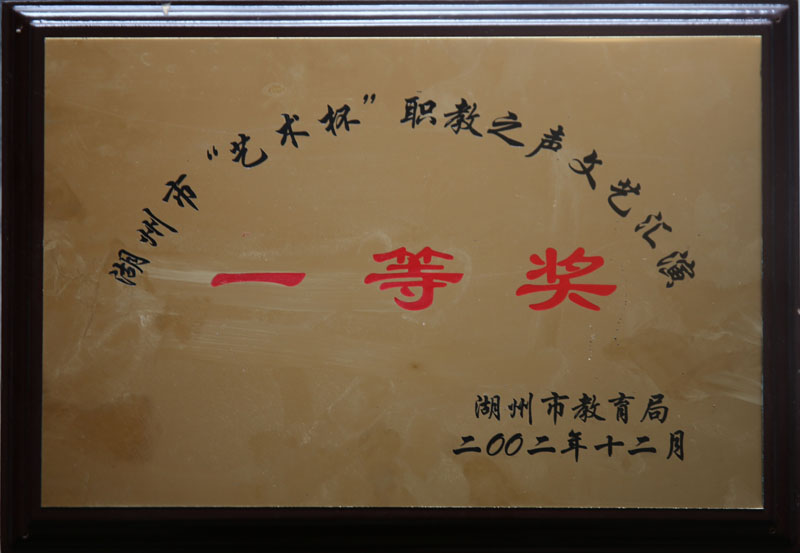 湖州市“艺术杯”职教之声文艺汇演
一等奖
湖州市教育局
二00二年十二月